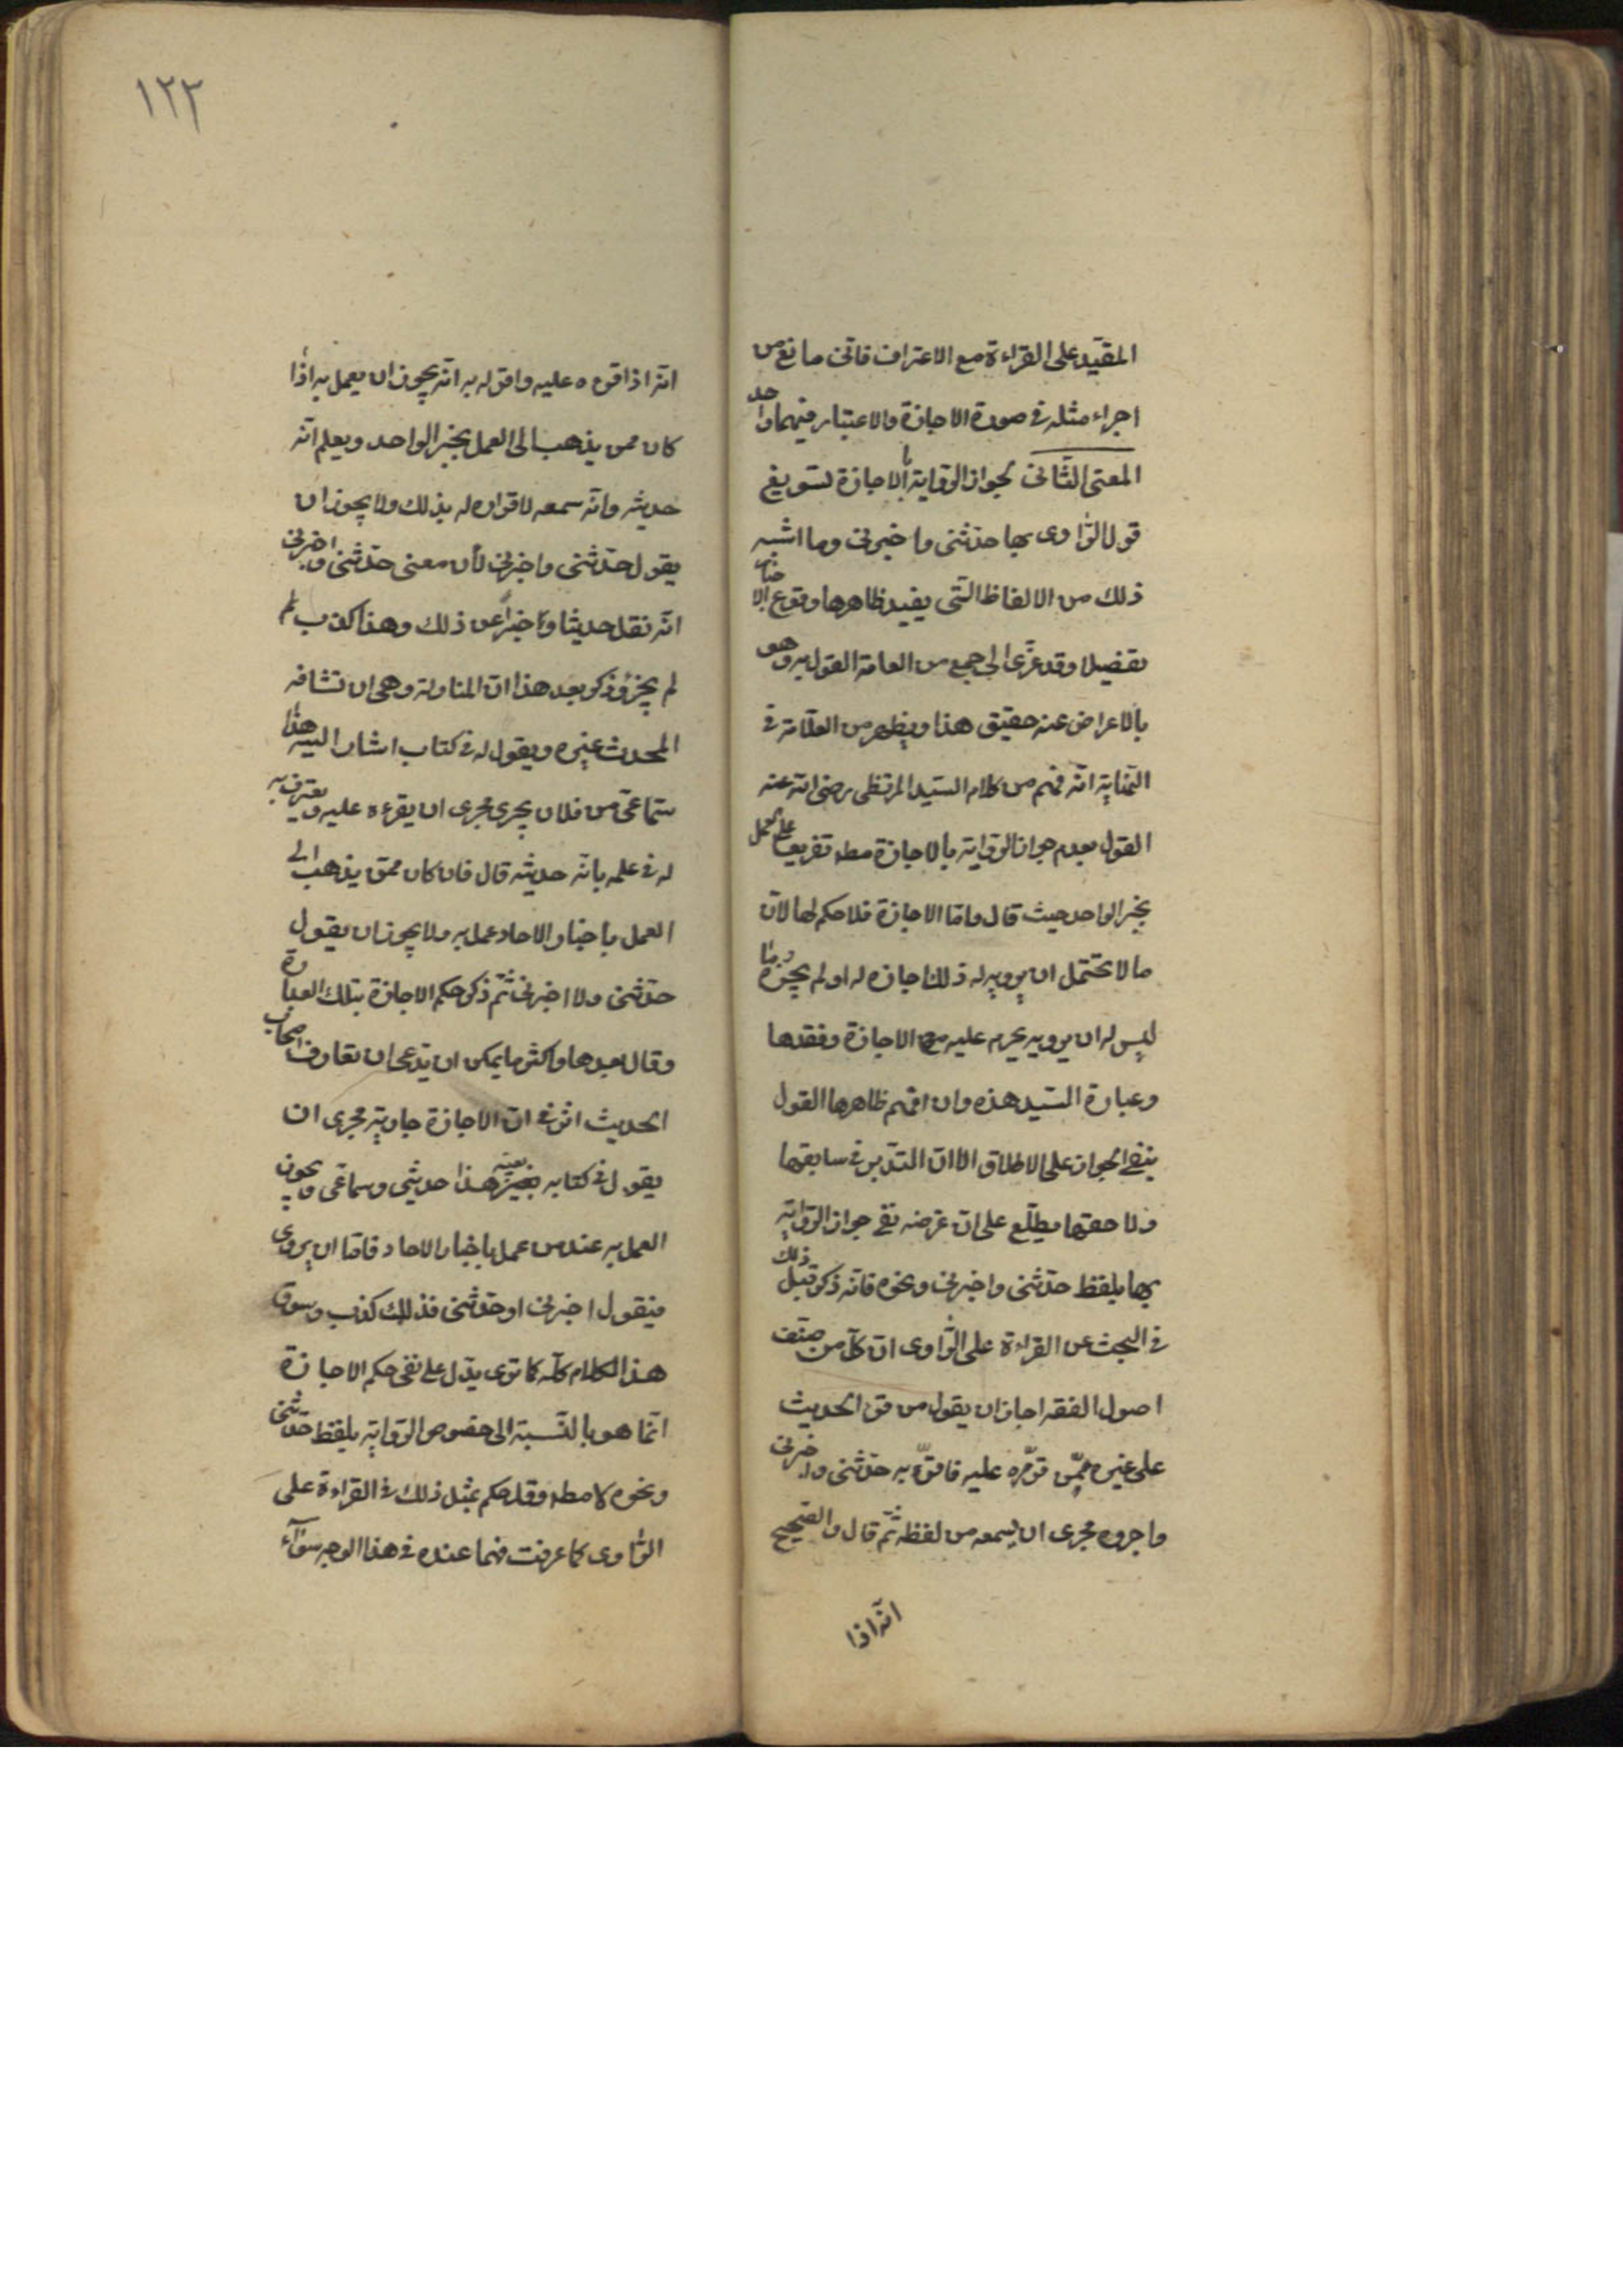 المقيد على القراءة مع الاعتراف فاى مانع من
اجراء مثله فى صورة الاجازة والاعتبار فيهما واحد
المعنى الثانى لجواز الرواية بالاجازة تسويغ
قول الراوى بها حدثنى واخبرنى وما اشبه
ذلك من الالفاظ التى يفيد ظاهرها وقوع الاخبار
تفصيلا وقد عزى الى جمع من العامة القول به وهو
بالاعراض عنه حقيق هذا ويظهر من العلامة فى
النهاية انه فهم من كلام السيد المرتضى رضى الله عنه
القول بعدم جواز الرواية بالاجازة مطه تفريعا على العمل
بخبر الواحد حيث قال واما الاجازة فلا حكم لها لان
ما للمتحمل ان يرويه له ذلك اجازه له او لم يجزه وما
ليس له ان يرويه يحرم عليه مع الاجازة وفقدها
وعبارة السيد هذه وان افهم ظاهرها القول
بنفى الجواز على الاطلاق الا ان التدبر فى سابقها
ولاحقها يطلع على ان غرضه نفى جواز الرواية
بها بلفظ حدثنى واخبرنى ونحوه فانه ذكر قبل ذلك
فى البحث عن القراءة على الراوى ان كل من صنف
اصول الفقه اجاز ان يقول من قرء الحديث
على غيره ممن قرره عليه فاقر به حدثنى واخبرنى
واجروه مجرى ان يسمعه من لفظه ثم قال والصحيح
انه اذا
١٢٣
انه اذا قرءه عليه واقر له به انه يجوز ان يعمل به اذا
كان ممن يذهب الى العمل بخبر الواحد ويعلم انه
حديثه وانه سمعه لاقراره له بذلك ولا يجوز ان
يقول حدثنى واخبرنى لأن معنى حدثنى واخبرنى
انه نقل حديثا واخبرا عن ذلك وهذا كذب
لم يجز وذكر بعد هذا ان المناولة وهى ان تشافه
المحدث غيره ويقول له فى كتاب اشار اليه هذا
سماعى من فلان يجرى مجرى ان يقرءه عليه ويعترف به
له فى علمه بانه حديثه قال فان كان ممن يذهب الى
العمل باخبار الاحاد عمل به ولا يجوز ان يقول
حدثنى ولا اخبرنى ثم ذكر حكم الاجازة بتلك العبارة
وقال بعدها واكثر ما يمكن ان يدعى ان تعارف اصحاب
الحديث اثر فى ان الاجازة جارية مجرى ان
يقول فى كتاب بعينه هذا حديثى وسماعى ويجوز
العمل به عند من عمل باخبار الاحاد فاما ان يروى
فيقول اخبرنى او حدثنى فذلك كذب وسوق
هذا الكلام كله كما ترى يدل على نفى حكم الاجازة
انما هو بالنسبة الى خصوص الرواية بلفظ حدثنى
ونحوه لا مطه وقد حكم بمثل ذلك فى القراءة على
الراوى كما عرفت فهما عنده فى هذا الوجه سواء